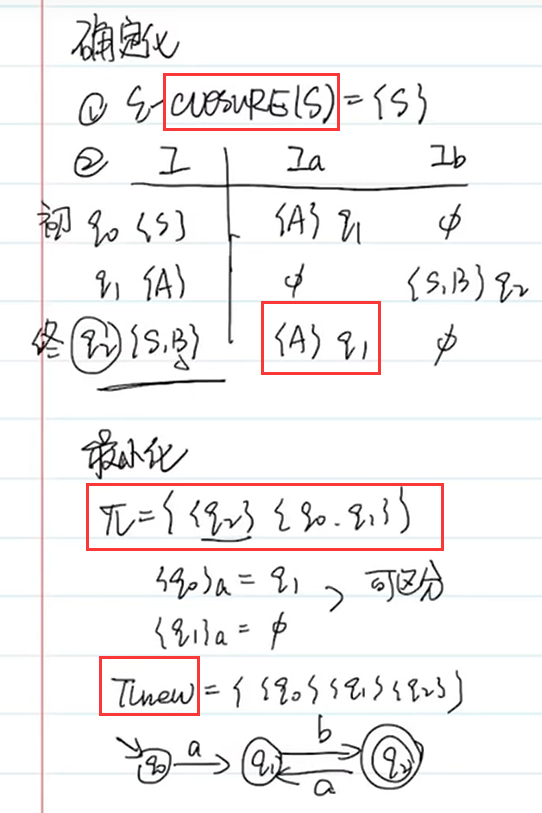 确定化
① ε-CLOSURE(S)={S}
② I Ia Ib
初 q0 {S} {A} q1 φ
q1 {A} φ {S,B} q2
终 q2 {S,B} {A} q1 φ
最小化
π={ {q2} {q0.q1} }
{q0}a = q1
可区分
{q1}a = φ
πnew = { {q0} {q1} {q2} }
q0 a q1 b a q2